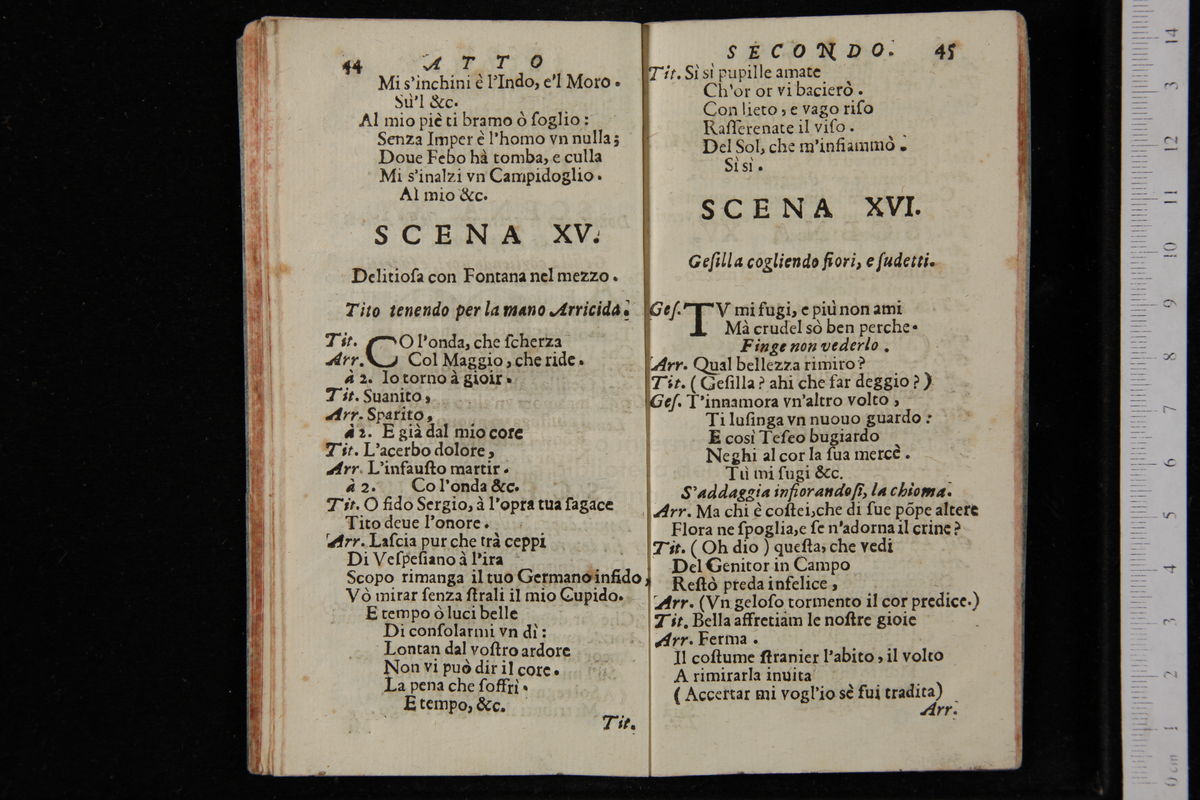 44 ATTO
Mi s'inchini è l'Indo, e'l Moro.
Sù'l &c.
Al mio piè ti bramo ò soglio:
Senza Imper è l'homo vn nulla;
Doue Febo hà tomba, e culla
Mi s'inalzi vn Campidoglio.
Al mio &c.
SCENA XV.
Delitiosa con Fontana nel mezzo.
Tito tenendo per la mano Arricida.
Tit. CO l'onda, che scherza
Arr. Col Maggio, che ride.
à 2. Io torno à gioir.
Tit. Suanito,
Arr. Sparito,
à 2. E già dal mio core
Tit. L'acerbo dolore,
Arr. L'infausto martir.
à 2. Co l'onda &c.
Tit. O fido Sergio, à l'opra tua sagace
Tito deue l'onore.
Arr. Lascia pur che trà ceppi
Di Vespesiano à l'ira
Scopo rimanga il tuo Germano infido,
Vò mirar senza strali il mio Cupido.
E tempo ò luci belle
Di consolarmi vn dì:
Lontan dal vostro ardore
Non vi può dir il core.
La pena che soffrì.
E tempo, &c.
Tit.
SECONDO. 45
Tit. Sì sì pupille amate
Ch'or or vi bacierò.
Con lieto, e vago riso
Rasserenate il viso.
Del Sol, che m'infiammò.
Sì sì.
SCENA XVI.
Gesilla cogliendo fiori, e sudetti.
Ges. TV mi fugi, e più non ami
Mà crudel sò ben perche.
Finge non vederlo.
Arr. Qual bellezza rimiro?
Tit. (Gesilla? ahi che far deggio?)
Ges. T'innamora vn'altro volto,
Ti lusinga vn nuouo guardo:
E così Teseo bugiardo
Neghi al cor la sua mercè.
Tù mi fugi &c.
S'addaggia infiorandosi, la chioma.
Arr. Ma chi è costei, che di sue põpe altere
Flora ne spoglia, e se n'adorna il crine?
Tit. (Oh dio) questa, che vedi
Del Genitor in Campo
Restò preda infelice,
Arr. (Vn geloso tormento il cor predice.)
Tit. Bella affretiam le nostre gioie
Arr. Ferma.
Il costume stranier l'abito, il volto
A rimirarla inuita
(Accertar mi vogl'io sè fui tradita)
Arr.
14
13
12
11
10
9
8
7
6
5
4
3
2
1
0 cm